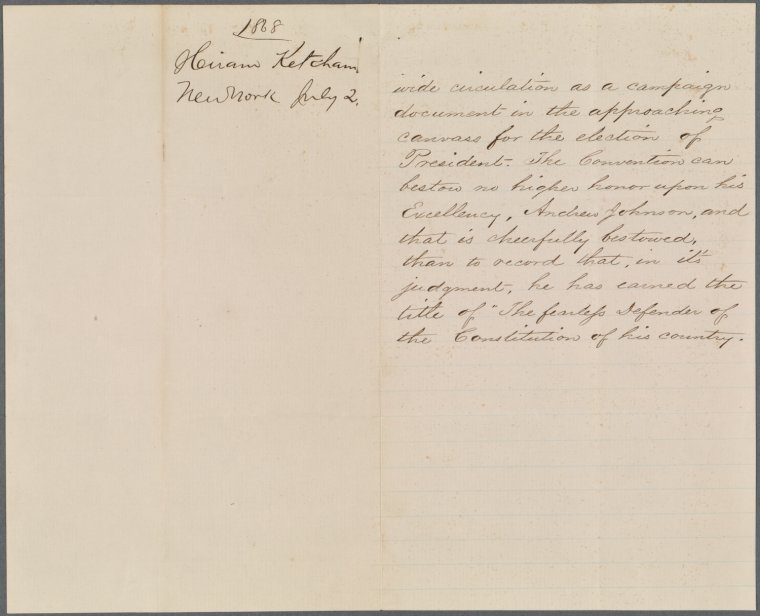 1868
Hiram Ketcham
New York July 2.
wide circulation as a campaign
document in the approaching
canvass for the election of
President. The Convention can
bestow no higher honor upon his
Excellency, Andrew Johnson, and
that is cheerfully bestowed,
than to record that, in it's
judgment, he has earned the
title of "The fearless Defender of
the Constitution of his country.